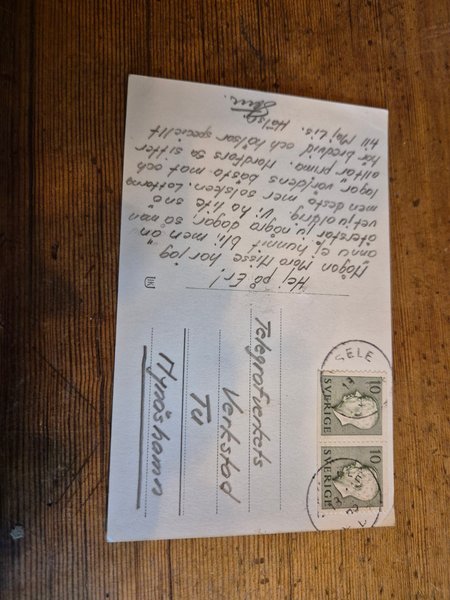 Hej på Er!
Någon Mora Nisse har jag
ännu ej hunnit bli, men än
återstår ju några dagar, så man
vet ju aldrig. Vi ha lite snö
men desto mer solsken. Lottorna
lagar världens bästa mat och
allt är prima. Nordfors sitter
här bredvid och hälsar speciellt
till Maj Lis. Hälsn.
Telegrafverkets
Verkstad
Nynäshamn
10
SVERIGE
10
SVERIGE
SELE